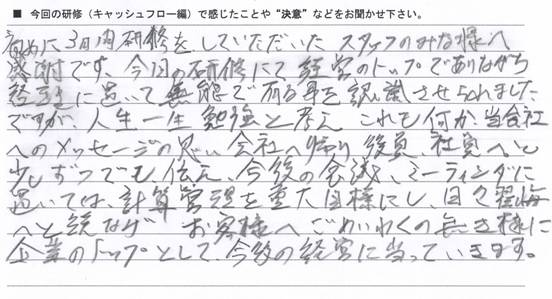 ■ 今回の研修（キャッシュフロー編）で感じたことや“決意”などをお聞かせ下さい。
初めに3日間研修をしていただいたスタッフのみな様へ
感謝です、今回の研修にて経営のトップでありながら
経営に置いて無能で有る事を認識させられました
ですが、人生一生勉強と考え これも何か当会社
へのメッセージの思い会社へ帰り役員、社員へと
少しずつでも伝え、今後の会議、ミーティングに
置いては、計算管理を重大目標にし、日々
へと続なげ お客様へごめいわくの無き様に
企業のトップとして、今後の経営に当っていきます。